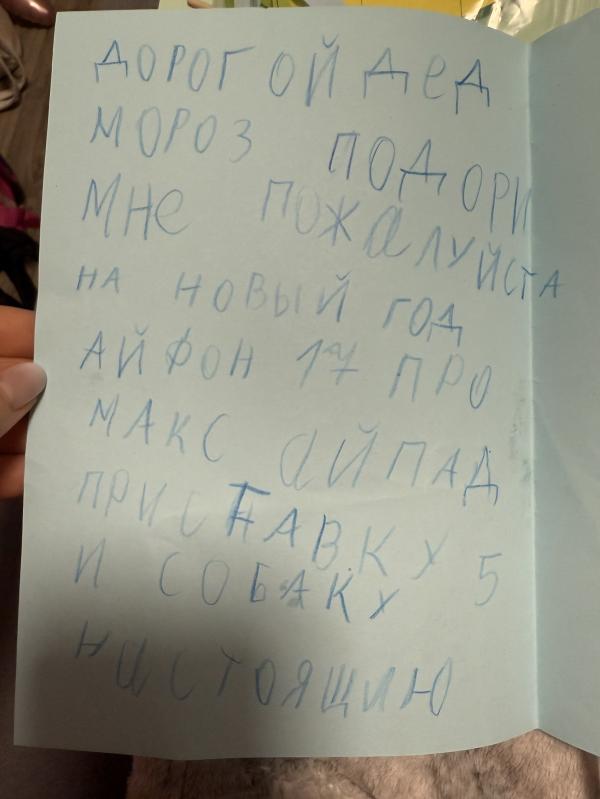 ДОРОГОЙ ДеД
МОРОЗ ПОДОРИ
МНе ПОЖаЛУЙСТА
НА НОВЫЙ ГОД
АЙФОН 17 ПРО
МАКС аЙПАД
ПРИСТАВКУ 5
И СОБАКУ
НаСТОЯЩИЮ